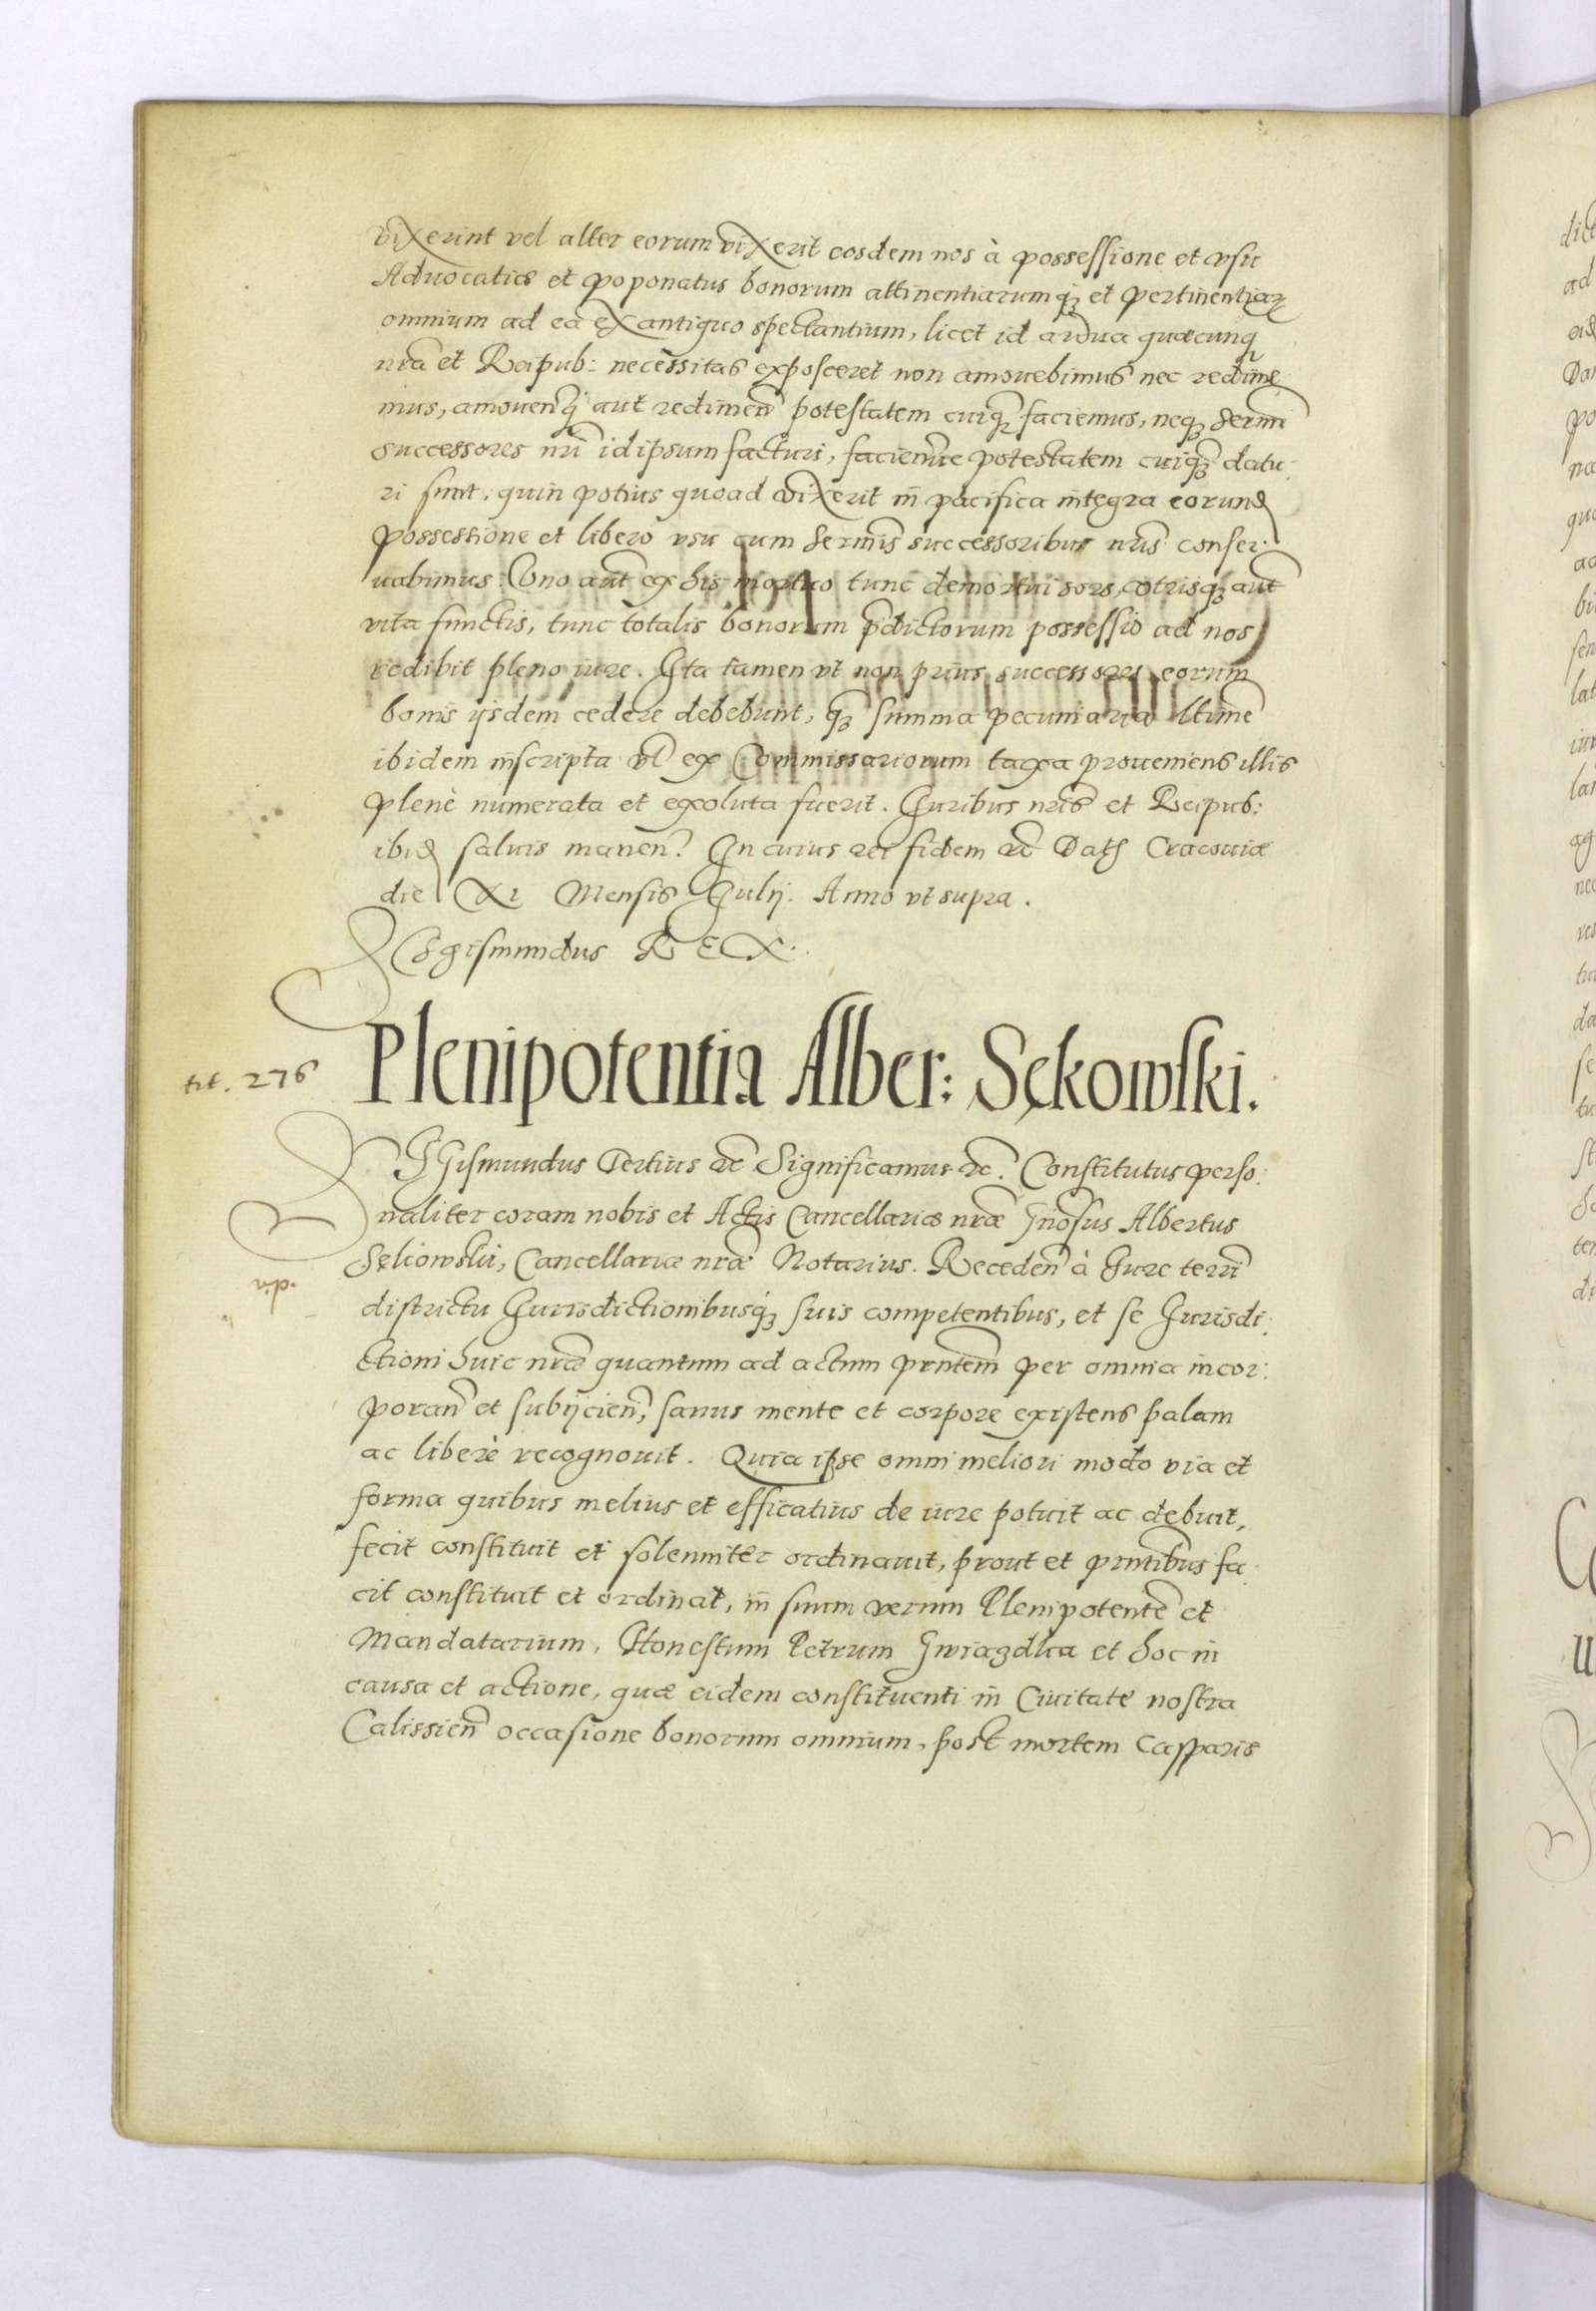 vixerint vel alter eorum vixerit eosdem nos à possessione et vsu
Aduocatiæ et poponatus bonorum attinentiarumq; et pertinentiar
omnium ad ea ex antiquo spectantium, licet id ardua quæcunq
nrã et Reipub: necessitas exposceret non amouebimus nec redime
mus, amouenꝗ aut redimenꝗ potestatem cuiq̃ faciemus, neq; Sermi
successores nri idipsum facturi, faciemue potestatem cuiq̃ datu:
ri sunt, quin potius quoad vixerit in pacifica integra eorund
possessione et libero vsu cum Sermis successoribus nris conser:
uabimus: Vno aut ex his mortuo tunc demortui sors, vtrisq; aut
vita functis, tunc totalis bonorum pdictorum possessio ad nos
redibit pleno iure. Ita tamen vt non prius successores eorum
bonis ijsdem cedere debebunt, q̃ summa pecuniaria vltime
ibidem inscripta vl ex Commissariorum taxa proueniens illis
plenè numerata et exoluta fuerit. Iuribus nris et Reipub:
ibid saluis manen. In cuius rei fidem etc Dat Cracouiæ
die XI Mensis Iulij. Anno vt supra.
Sigismundus REX.
tit. 276
Plenipotentia Alber: Sękowski.
SIGismundus Tertius etc Significamus etc. Constitutus perso:
naliter coram nobis et Actis Cancellariæ nræ Gnosus Albertus
Sękowski, Cancellariæ nræ Notarius. Receden à Iure terri
districtu Iurisdictionibusq; suis competentibus, et se Iurisdi:
ctioni huic nræ quantum ad actum pntem per omnia incor:
poran et subijcien, sanus mente et corpore existens palam
ac liberè recognouit. Quia ipse omni meliori modo via et
forma quibus melius et efficatius de iure potuit ac debuit,
fecit constituit et solenniter ordinauit, prout et pntibus fa:
cit constituit et ordinat, in suum verum Plenipotente et
Mandatarium, Honestum Petrum Gwiazdka et hoc in
causa et actione, quæ eidem constituenti in Ciuitate nostra
Calissien occasione bonorum omnium, post mortem Casparis